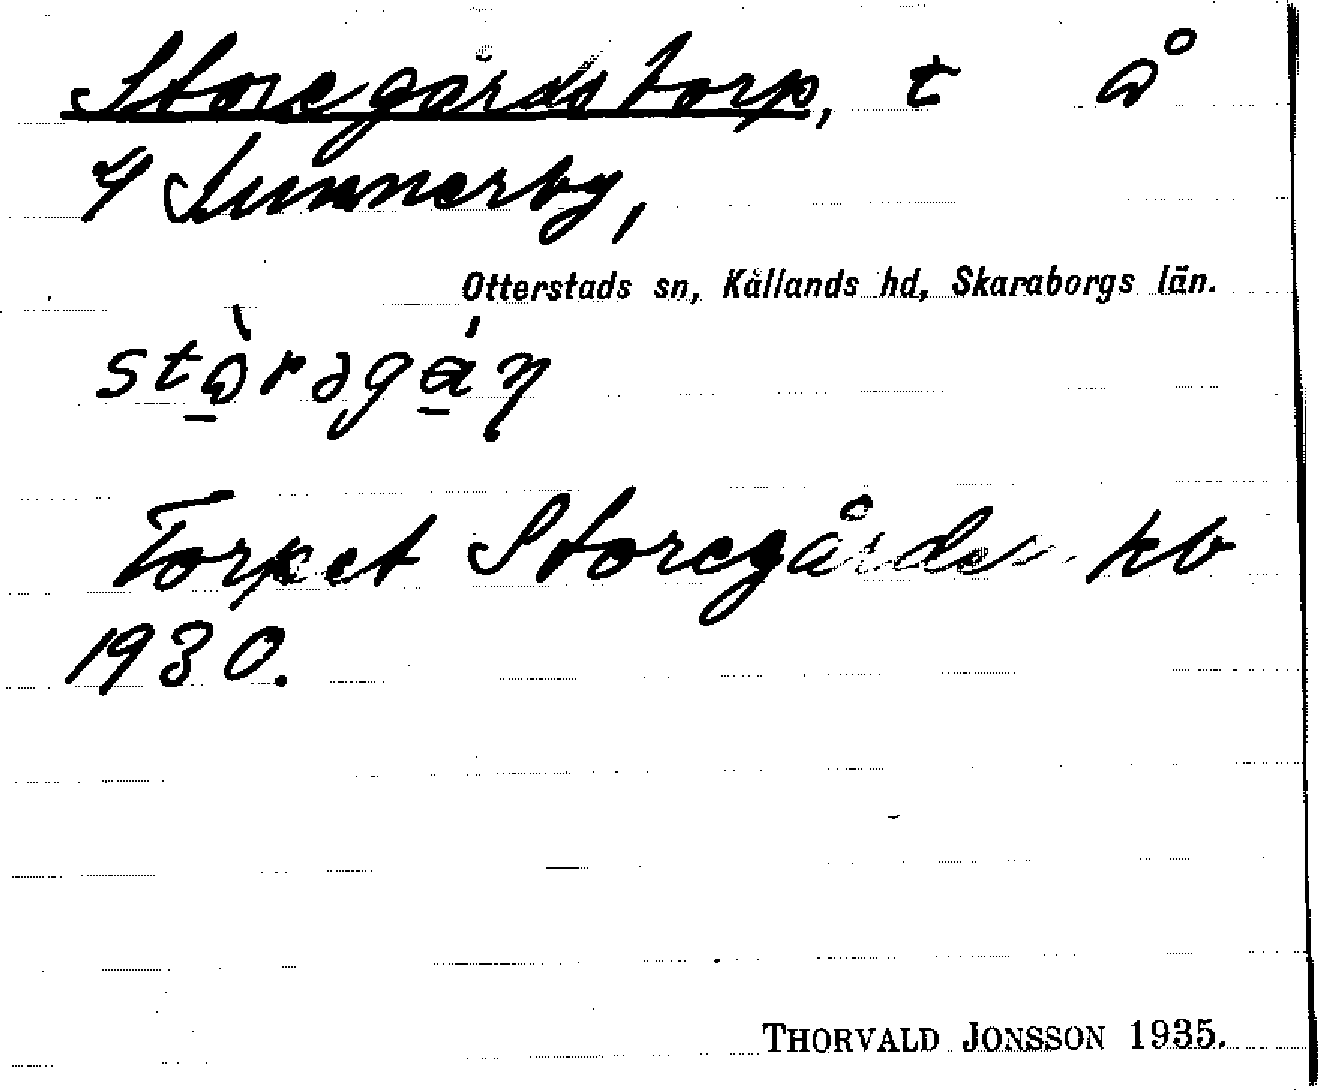 Storegårdstorp, t å
4 Sunnerby,
Otterstads sn, Kållands hd, Skaraborgs län.
Torpet Storegården kb
1930.
THORVALD JONSSON 1935.